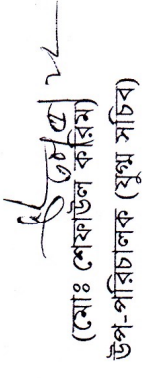 (মোঃ শেফাউল করিম)
উপ-পরিচালক (যুগ্ম সচিব)